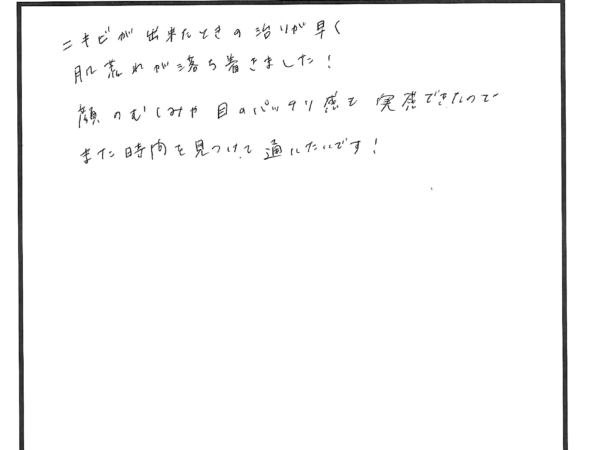 ニキビが出来たときの治りが早く
肌荒れが落ち着きました!
顔のむくみや目のパッチリ感も実感できたので
また時間を見つけて通いたいです!